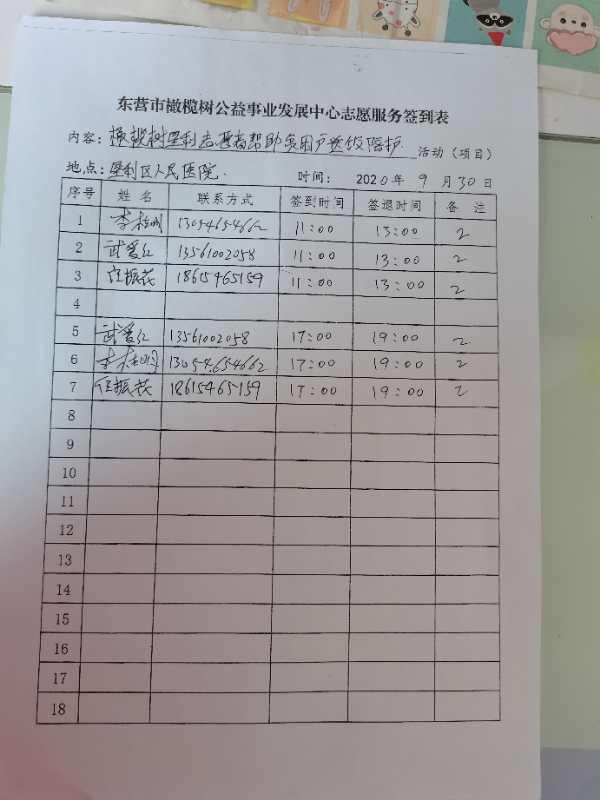 东营市橄榄树公益事业发展中心志愿服务签到表
内容：橄榄树垦利志愿者帮助贫困户送饭陪护 活动（项目）
地点：垦利区人民医院. 时间：2020年9月30日
序号 姓名 联系方式 签到时间 签退时间 备注
1 李桂明 13054654662 11:00 13:00 2
2 武爱红 13561002058 11:00 13:00 2
3 任振花 18615465159 11:00 13:00 2
4
5 武爱红 13561002058 17:00 19:00 2
6 李桂明 13054654662 17:00 19:00 2
7 任振花 18615465159 17:00 19:00 2
8
9
10
11
12
13
14
15
16
17
18